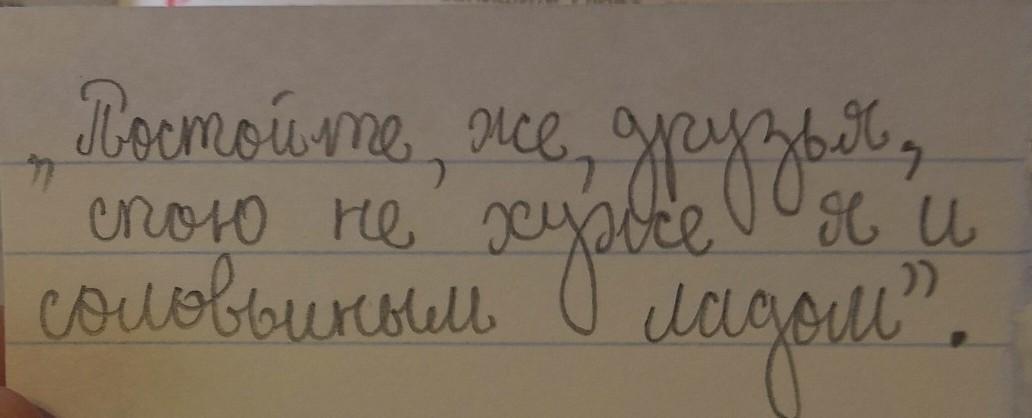 „Постойте, же, друзья,
спою не хуже я и
соловьиным ладом”.